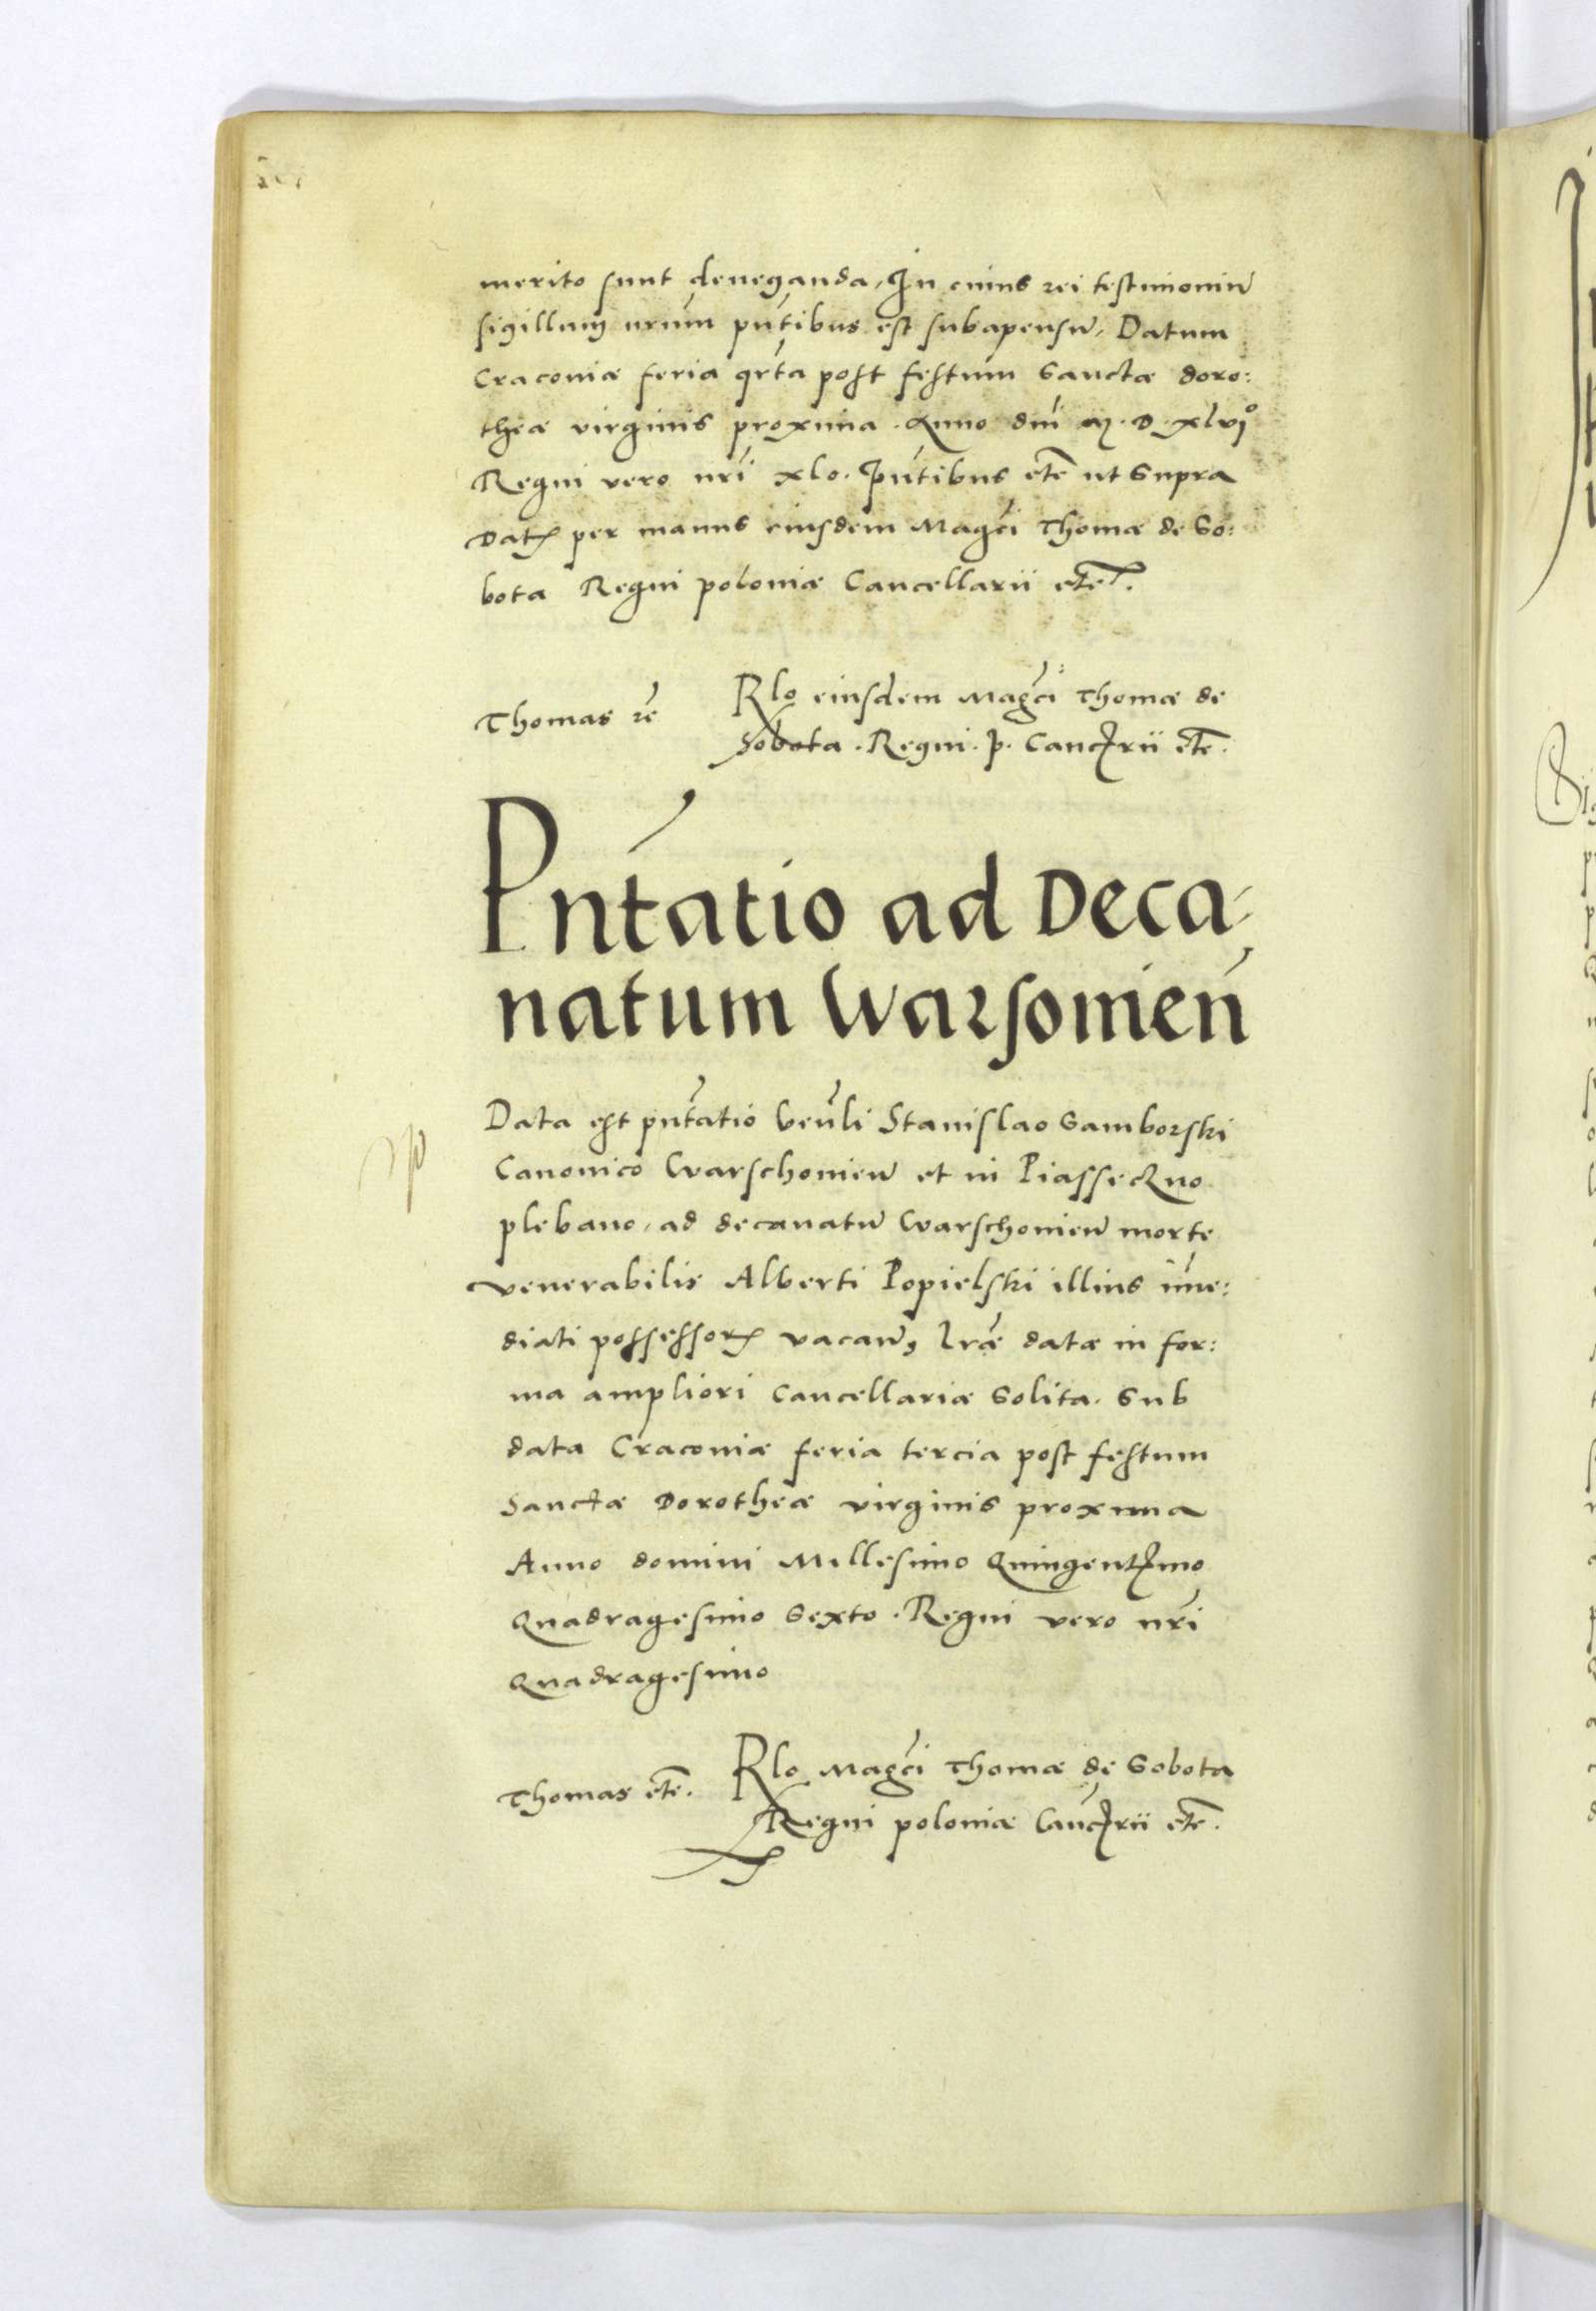 merito sunt deneganda, In cuius rei testimoniū
sigillum nrūm pn̄tibus est subapensū, Datum
Cracoviæ feria qrt́a post festum Sanctæ doro:
theæ virginis proxima. Anno dnī M. D. xlvjº
Regni vero nrī xlo. Pn̄tibus etc̄ ut supra
Datꝭ per manus eiusdem Magc̄i Thomæ de So:
bota Regni poloniæ Cancellarii etc̄.
Thomas rē
Rlo eiusdem Magc̄i Thomæ de
Sobota. Regni. P. Cancꝭrii etc̄.
Pnt́atio ad Deca,
natum Warsovień
Data est pnt́atio Venl̄i Stanislao Samborski
Canonico Warschovień et in Piasseczno
plebano, ad decanatū Warschovień morte
venerabilis Alberti Popielski illius im̄e:
diati possessorꝭ vacań, lrǽ datæ in for:
ma ampliori Cancellariæ solita. Sub
data Cracoviæ feria tercia post festum
Sanctæ Dorotheæ virginis proxima
Anno domini Millesimo Quingentꝭmo
Quadragesimo Sexto. Regni vero nrī
Quadragesimo
Thomas etc̄.
Rlo Magc̄i Thomæ de Sobota
Regni poloniæ Canc̄ꝭrii etc̄.